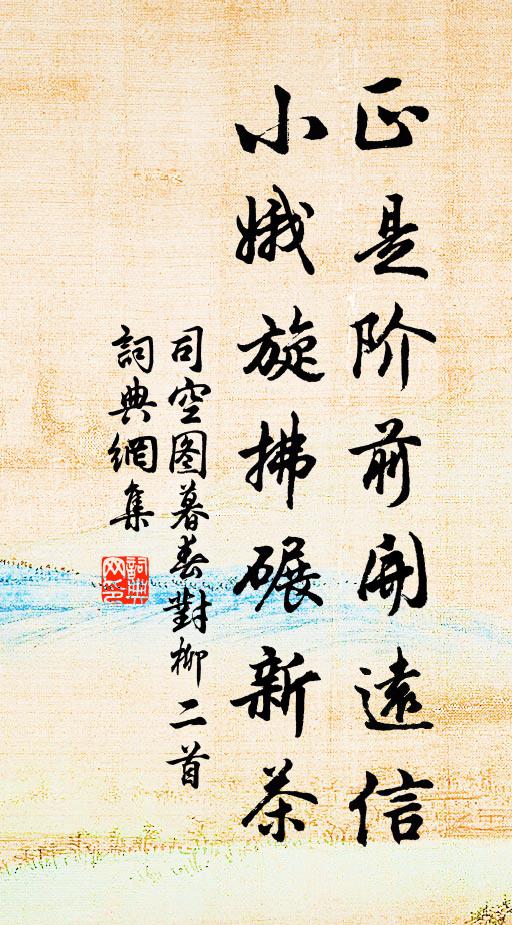 正是阶前開遠信
小娥旋拂碾新茶
司空图暮春對柳二首
詞典網集
詞典網印